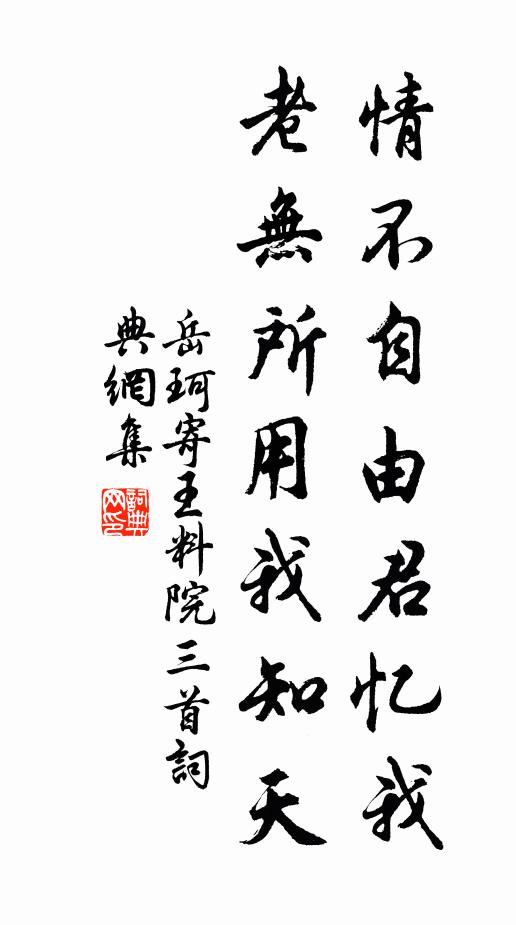 情不自由君忆我
老無所用我知天
岳珂寄王料院三首詞
典網集
詞典網印